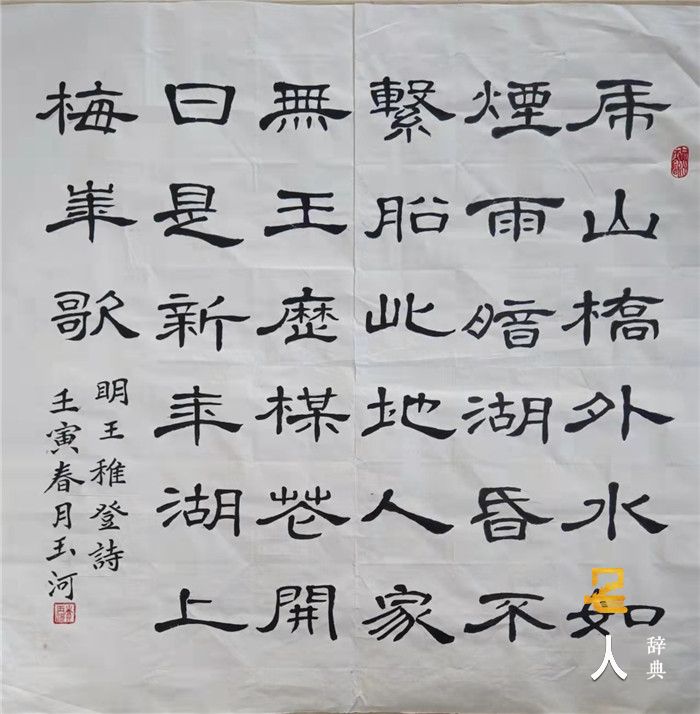 虎山橋外水如
煙雨暗湖昏不
繫船此地人家
無王歷楳花開
日是新年湖上
梅華歌
明王稚登詩
壬寅春月玉河
名人
辞典